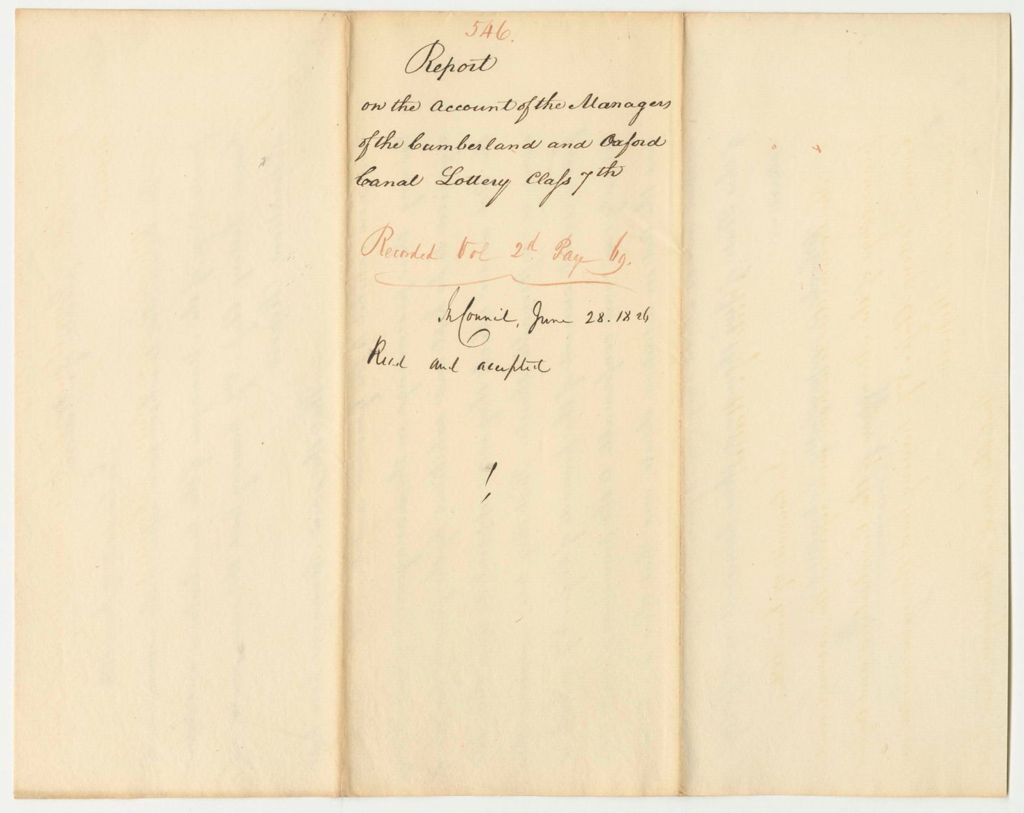 546.
Report
on the account of the Managers
of the Cumberland and Oxford
Canal Lottery Class 7th
Recorded Vol 2d. Page 69.
In Council, June 28. 1826
Read and accepted